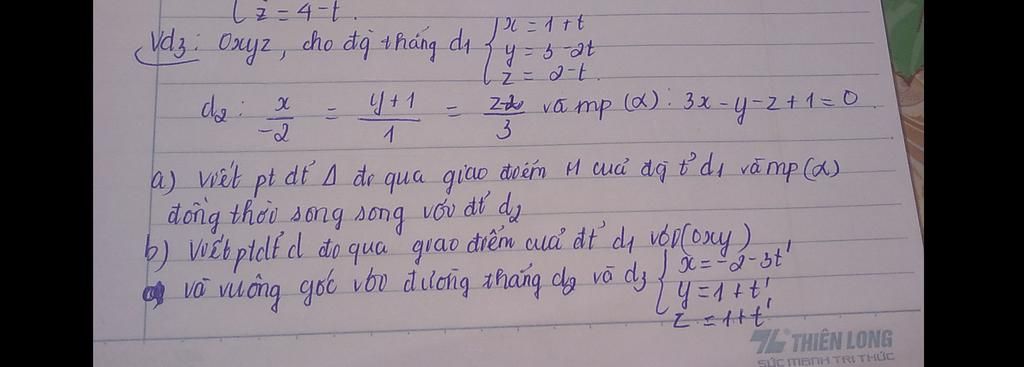 z = 4-t.
Vd3: Oxyz, cho đg thẳng d1 { x = 1+t
y = 3-2t
z = 2-t.
d2: x/-2 = y+1/1 = z-2/3 và mp (α): 3x-y-z+1=0.
a) viết pt đt Δ đi qua giao điểm M cuả đg t² d1 và mp(α)
đồng thời song song với đt d2
b) viết ptđt d đi qua giao điểm cuả đt d1 với (Oxy)
và vuông góc với đường thẳng d2 và d3 { x=-2-3t'
y=1+t'
z=1+t'
THIÊN LONG
SỨC MẠNH TRI THỨC